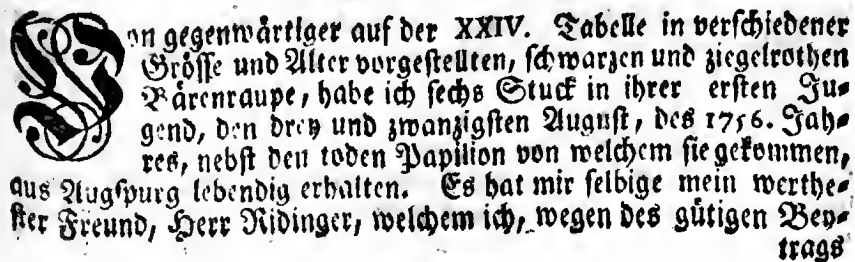 Von gegenwärtiger auf der XXIV. Tabelle in verschiedener
Grösse und Alter vorgestellten, schwarzen und ziegelrothen
Bärenraupe, habe ich sechs Stuck in ihrer ersten Ju-
gend, den drey und zwanzigsten August, des 1756. Jah-
res, nebst den toden Papilion von welchem sie gekommen,
aus Augspurg lebendig erhalten. Es hat mir selbige mein werthe-
ster Freund, Herr Ridinger, welchem ich, wegen des gütigen Bey-
trags